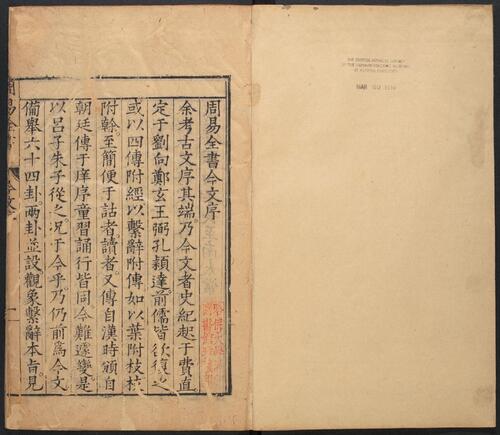 周易全書今文序
余考古文序其端乃今文者史紀起于費直
定于劉向鄭玄王弼孔穎達前儒皆欲復之
或以四傳附經以繫辭附傳如以葉附枝枝
附榦至簡便于詁者讀者又傳自漢時頒自
朝廷傳于庠序童習誦行皆同今難遽變是
以呂子朱子從之况于今乎乃仍前爲今文
備舉六十四卦兩卦並設觀象繫辭本旨見
周易全書
今文序
一